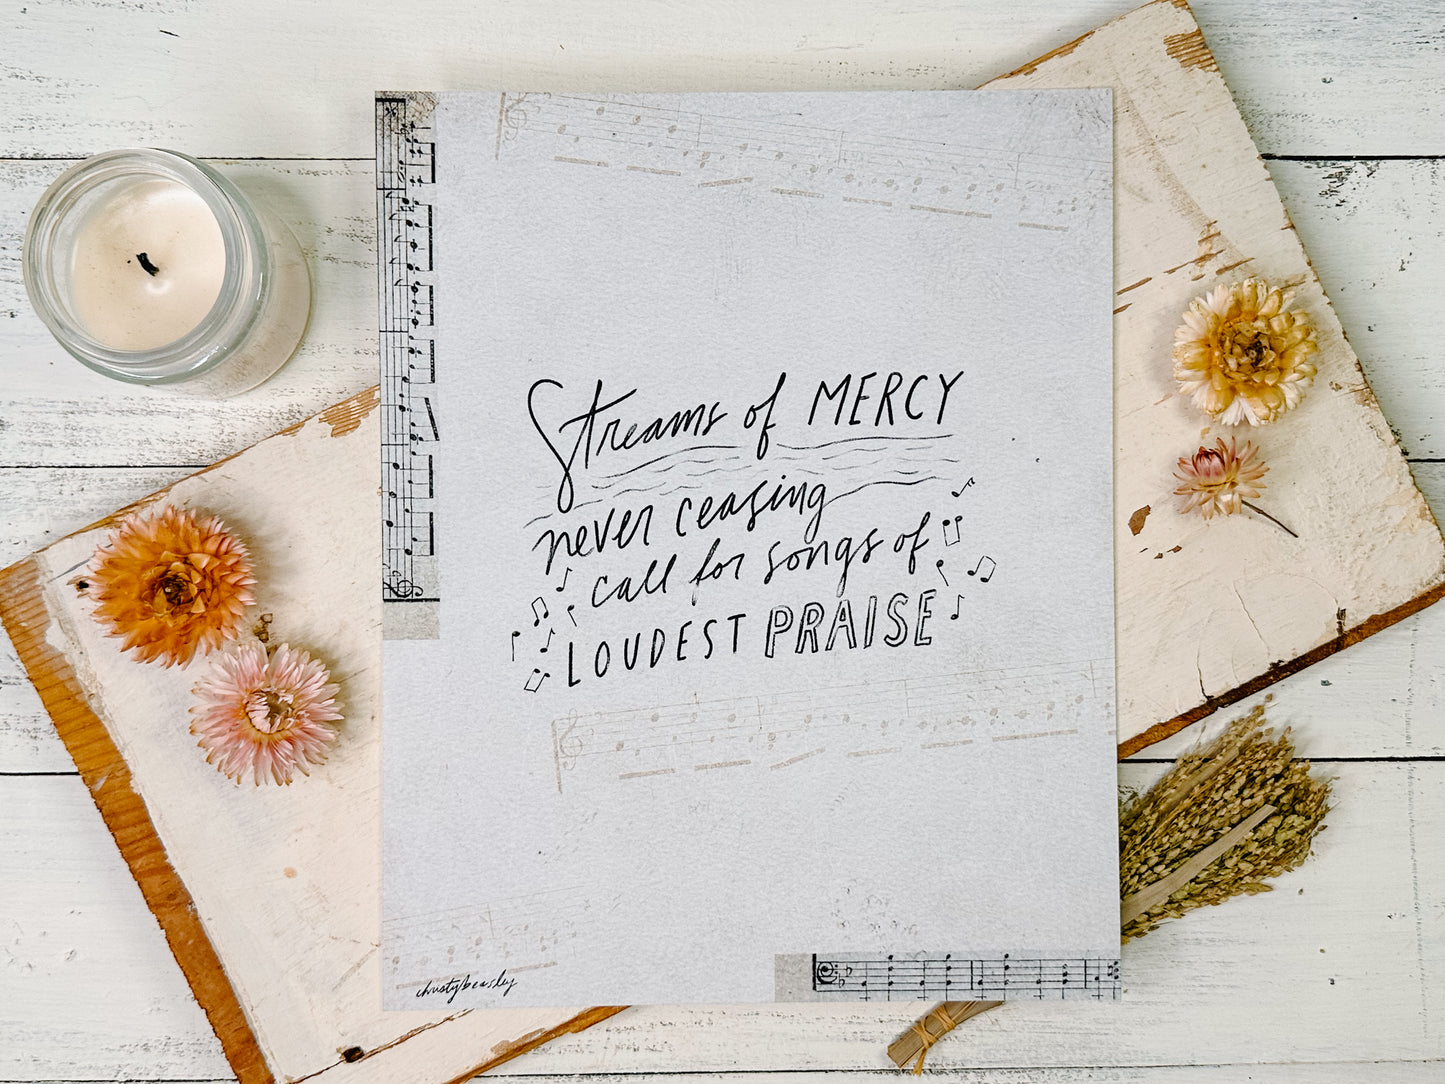 Streams of MERCY
never ceasing
call for songs of
LOUDEST PRAISE
christybeasley